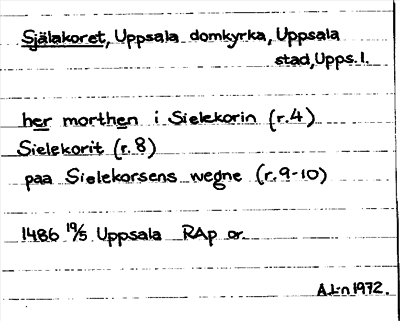 Själakoret, Uppsala domkyrka, Uppsala
stad, Upps. l.
her morthen i Sielekorin (r.4)
Sielekorit (r.8)
paa Sielekorsens wegne (r.9-10)
1486 19/5 Uppsala RAp or.
A.L:n 1972.